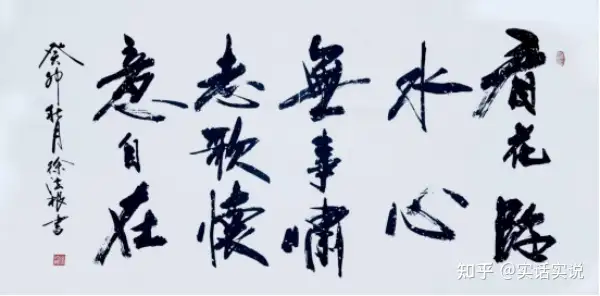 看花臨
水心
無事嘯
志歌懷
意自在
癸卯秋月徐法根書
知乎 @实话实说